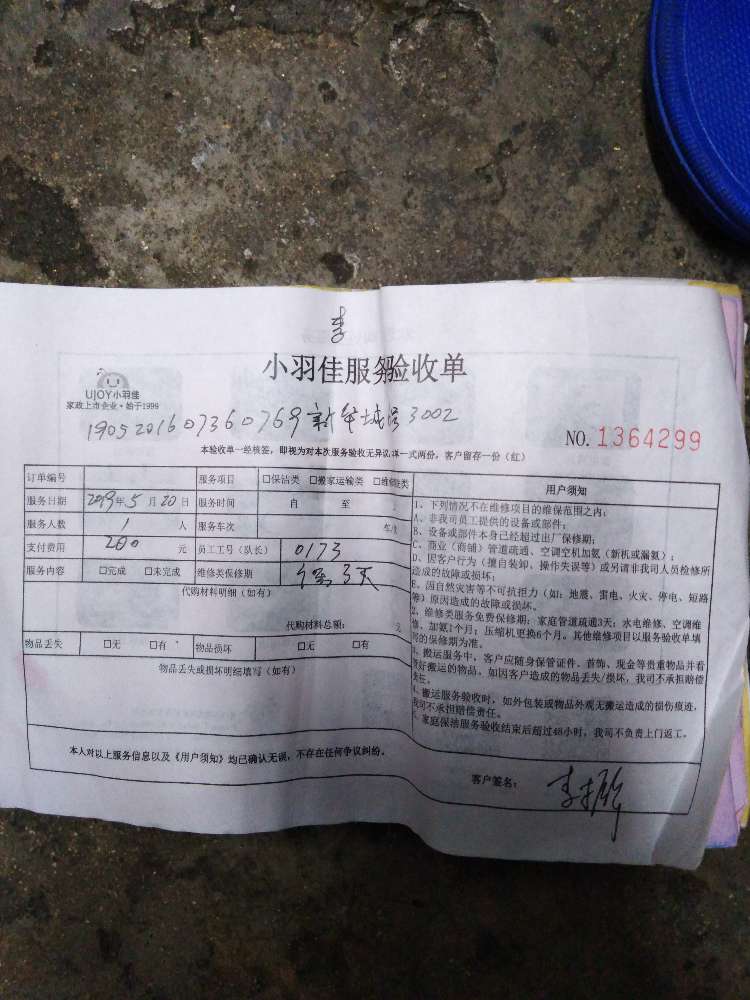 李
小羽佳服务验收单
UJOY小羽佳
家政上市企业·始于1999
1905201607360769 新 城 3002
NO. 1364299
本验收单一经核签，即视为对本次服务验收无异议 一式两份，客户留存一份（红）
订单编号 服务项目 □保洁类 □搬家运输类 □维修类
服务日期 2019年5月20日 服务时间 自 至
服务人数 1 人 服务车次 车/次
支付费用 200 元 员工工号（队长） 0173
服务内容 □完成 □未完成 维修类保修期 保3天
代购材料明细（如有）
代购材料总额： 元
物品丢失 □无 □有 物品损坏 □无 □有
物品丢失或损坏明细填写（如有）
用户须知
1、下列情况不在维修项目的维保范围之内：
A、非我司员工提供的设备或部件；
B、设备或部件本身已经超过出厂保修期；
C、商业（商铺）管道疏通、空调空机加氨（新机或漏氨）；
D、因客户行为（擅自装卸、操作失误等）或另请非我司人员检修所
造成的故障或损坏；
E、因自然灾害等不可抗拒力（如：地震、雷电、火灾、停电、短路
等）原因造成的故障或损坏。
2、维修类服务免费保修期：家庭管道疏通3天；水电维修、空调维
修、加氨1个月；压缩机更换6个月。其他维修项目以服务验收单填
写的保修期为准。
3、搬运服务中，客户应随身保管证件、首饰、现金等贵重物品并看
管好搬运的物品。如因客户造成的物品丢失/损坏，我司不承担赔偿
责任。
4、搬运服务验收时，如外包装或物品外观无搬运造成的损伤痕迹，
我司不承担赔偿责任。
5、家庭保洁服务验收结束后超过48小时，我司不负责上门返工。
本人对以上服务信息以及《用户须知》均已确认无误，不存在任何争议纠纷。
客户签名：